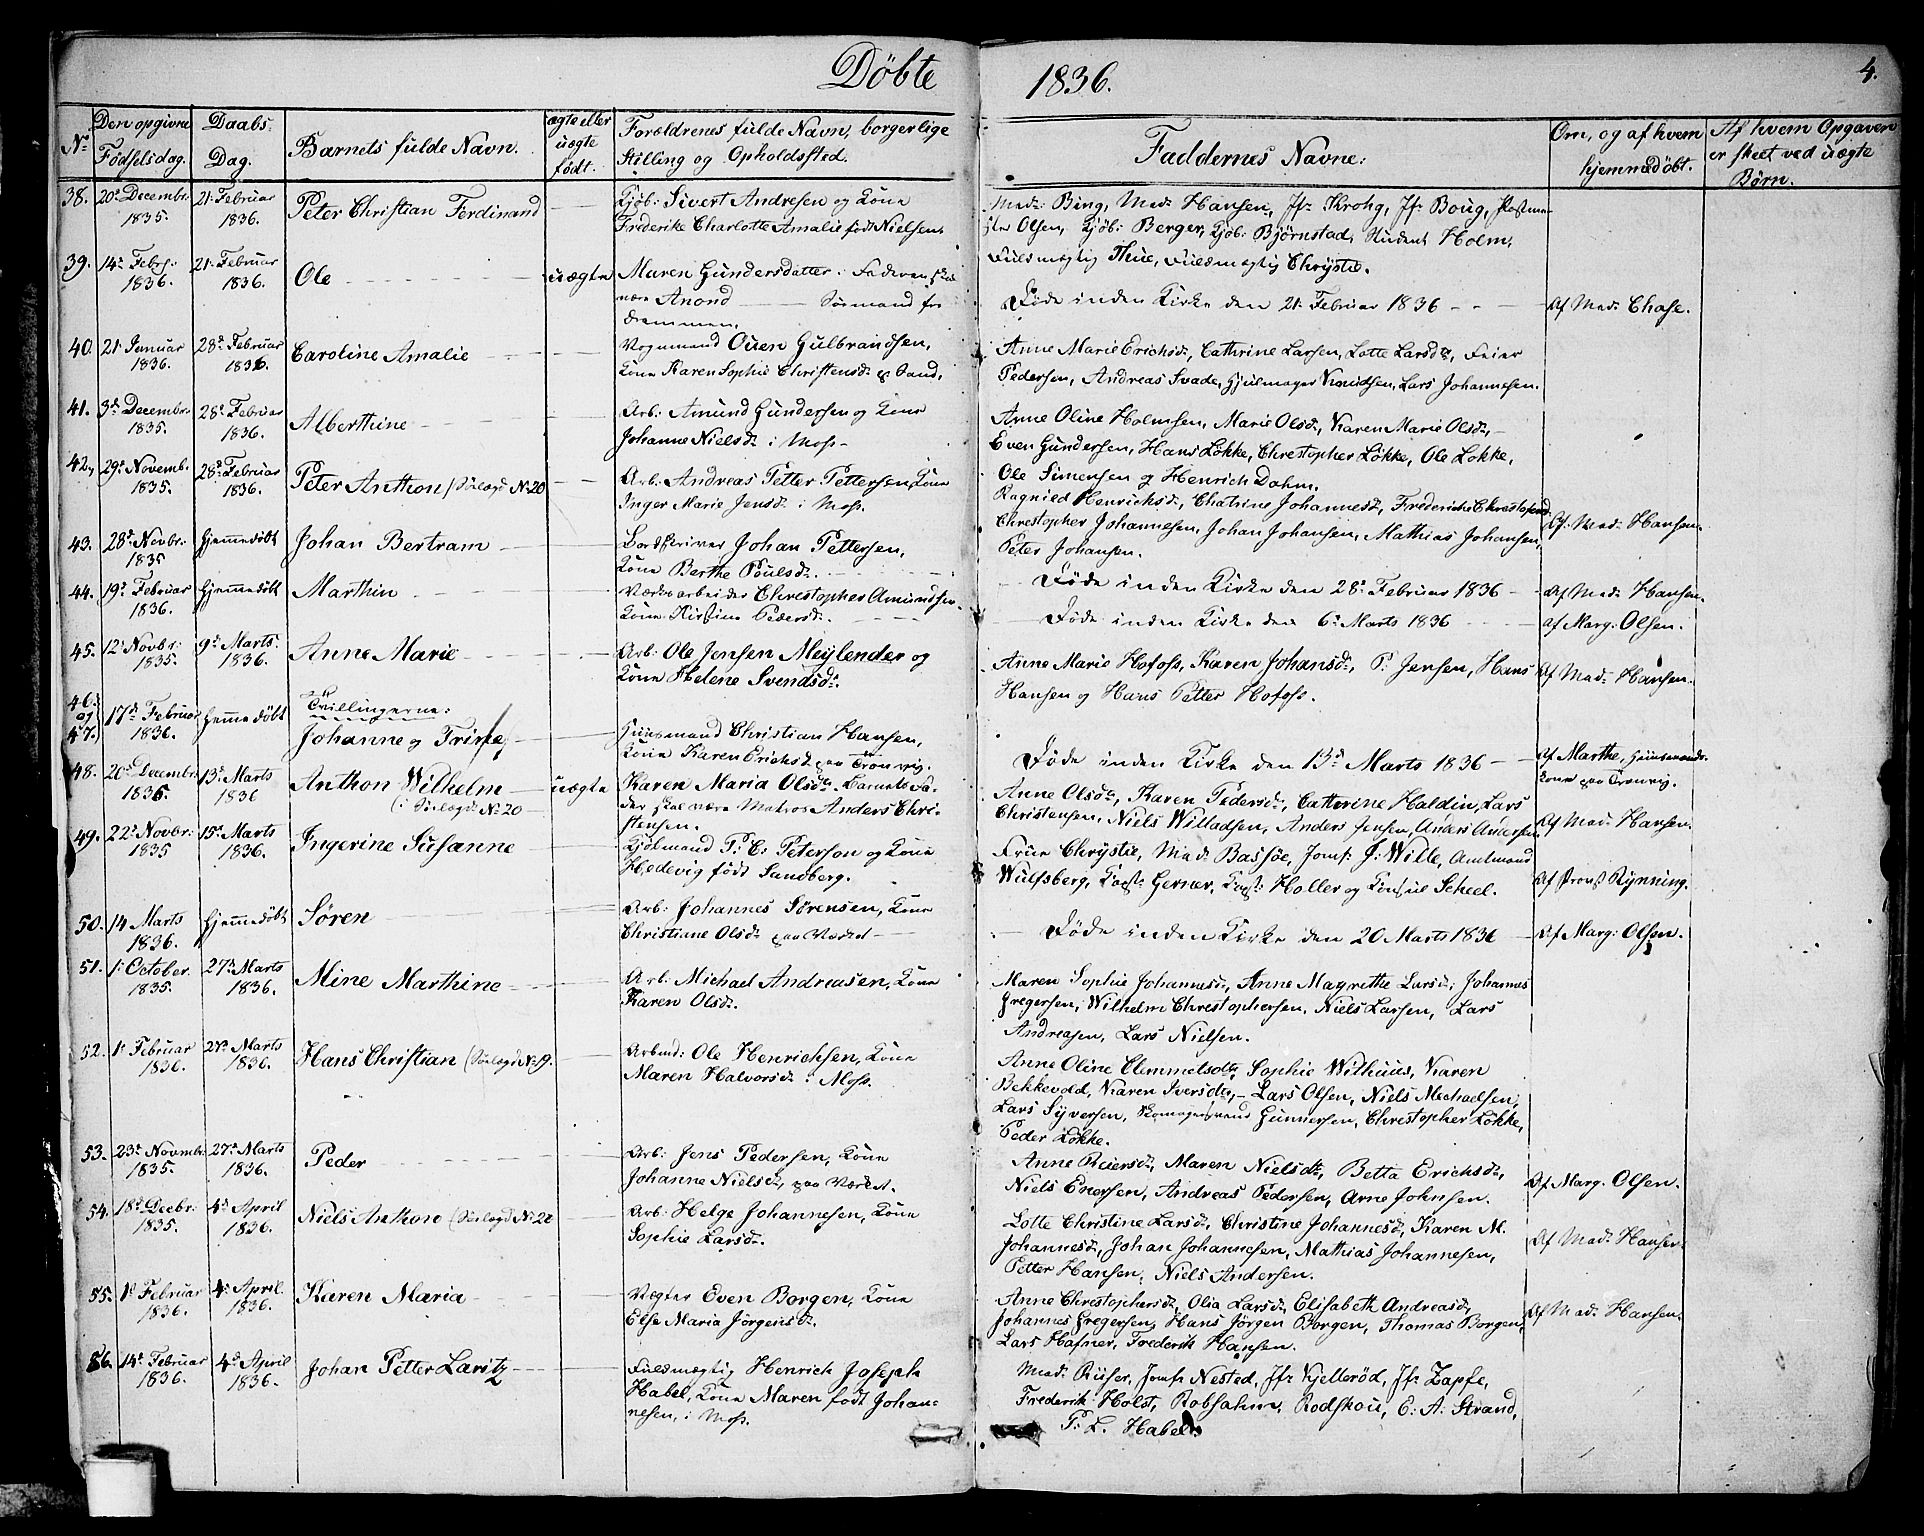 Döbte 1836. 4.
No. Den opgivne Födselsdag. Daabs Dag. Barnets fulde Navn. ægte eller uægte födt. Forældrenes fulde Navn, borgerlige Stilling og Opholdssted. Faddernes Navne: Om, og af hvem hjemmedöbt. Af hvem Opgaven er skeet ved uægte Börn.
38. 20d Decembr. 21. Februar Peter Christian Ferdinand Kjöb: Sivert Andresen og Kone Mad: Bing, Mad: Hansen, Jfr Krohg, Jfr Boug, Postme-
1835. 1836. Frederike Charlotte Amalie födt Nielsen. ster Olsen, Kjöb: Berger, Kjöb: Björnstad, Student Holm,
Fuldmægtig Thue, Fuldmægtig Chrystie.
39. 14de Febr: 21. Februar Ole uægte Maren Gundersdatter. Faderen skal
1836. 1836. være Anond Sömand fra Döde inden Kirke den 21. Februar 1836 Af Mad: Chase.
Drammen.
40. 21. Januar 28d Februar Caroline Amalie Vognmand Ouen Gulbrandsen, Anne Marie Erichsd., Cathrine Larsen, Lotte Larsdtr, Feier
1836. 1836. Kone Karen Sophie Christensd. Pedersen, Andreas Svade, Hjulmager Knudsen, Lars Johannesen.
41. 3d Decembr. 28d Februar Alberthine Arb: Amund Gundersen og Kone Anne Oline Holmsen, Marie Olsd., Karen Marie Olsd.,
1835. 1836. Johanne Nielsd. i Moss Even Gundersen, Hans Lökke, Christopher Lökke, Ole Lökke,
Ole Simensen og Henrich Dahm.
42. 29d Novemb. 28d Februar Peter Anthon (Sölægd No 20 Arb: Andreas Petter Pettersen, Kone Ragnied Henrichsd., Chatrine Johannesd., Frederiche Christophersd.
1835. 1836. Inger Marie Jensd. i Moss. Christopher Johannesen, Johan Johansen, Mathias Johansen, Af Mad: Hansen.
Peter Johansen.
43. 28d Novbr: hjemmedöbt Johan Bertram Bordskriver Johan Pettersen,
1835 Kone Berthe Poulsd. Döde inden Kirke den 28d Februar 1836 Af Mad: Hansen.
44. 19d Februar hjemmedöbt Marthin Værksarbeider Christopher Amundsen
1836. Kone Kirstine Pedersd. Döde inden Kirke den 6d Marts 1836 af Marg: Olsen.
45. 12d Novbr: 9d Marts Anne Marie Arb: Ole Jensen Meylender og Anne Marie Hofoss, Karen Johansd., P. Jensen, Hans
1835. 1836. Kone Helene Svendsd. Hansen og Hans Petter Hofoss. Af Mad: Hansen.
46. og 47. Tvillingerne:
17d Februar hjemmedöbt Johanne og Trine Huusmand Christian Hansen,
1836. Kone Karen Erichsd. paa Tronvig. Döde inden Kirke den 13d Marts 1836 Af Marthe, Huusmands-
kone paa Tronvig.
48. 20d Decembr. 13d Marts Anthon Wilhelm uægte Karen Maria Olsd. Barnets Fa- Anne Olsd., Karen Pedersd., Cathrine Haldin, Lars
1835. 1836 (i Sölægd No 20 der skal være Matros Anders Chri- Christensen, Niels Willadsen, Anders Jensen, Anders Andersen Af Mad: Hansen.
stensen.
49. 22d Novbr: 15d Marts Ingerine Susanne Kjöbmand P. C. Peterson og Kone Frue Chrystie, Mad: Bassöe, Jomf: J. Wille, Amtmand
1835 1836. Hedevig födt Sundberg. Wulfsberg, Capt: Gerner, Capt: Holler og Consul Scheel. Af Provst Rynning.
50. 14 Marts hjemmedöbt Sören Arb: Johannes Sörensen, Kone
1836. Christiane Olsd. paa Værket Döde inden Kirke den 20 Marts 1836 Af Marg: Olsen.
51. 1. October. 27d Marts Mine Marthine Arb: Michael Andreasen, Kone Maren Sophie Johannesd., Anne Magrethe Larsd., Johannes
1835. 1836. Karen Olsd. Gregersen, Wilhelm Christophersen, Niels Larsen, Lars
Andreasen, Lars Nielsen.
52. 1d Februar 27d Marts Hans Christian (Sölægd No 19. Arbmd: Ole Henrichsen, Kone Anne Oline Clemmetsdtr, Sophie Withuus, Karen
1836. 1836. Maren Halvorsd. i Moss. Bekkevold, Karen Iversdtr, Lars Olsen, Niels Michaelsen,
Lars Syversen, Skomagersvend Gunnersen, Christopher Lökke,
Peder Lökke.
53. 23d Novmbr. 27d Marts Peder Arb: Jens Pedersen, Kone Anne Reiersd., Maren Nielsd., Betta Erichsd.,
1835. 1836. Johanne Nielsd., paa Værket. Niels Enersen, Andreas Pedersen, Arne Johnsen. Af Marg. Olsen.
54. 18d Decbr: 4d April Niels Anthon (Sölægd No 20 Arb: Helge Johannesen, Kone Lotte Christine Larsd., Christine Johannesd., Karen M.
1835. 1836. Sophie Larsd. Johannesd., Johan Johannesen, Mathias Johannesen, Af Mad: Hansen.
Petter Hansen, Niels Andersen.
55. 1d Februar 4d April. Karen Maria Vægter Even Borgen, Kone Anne Christophersd., Olia Larsd., Elisabeth Andreasd.,
1836. 1836. Else Maria Jörgensd. Johannes Gregersen, Hans Jörgen Borgen, Thomas Borgen, Af Mad: Hansen.
Lars Hafner, Frederik Hansen.
56. 14d Februar 4d April Johan Petter Laritz Fuldmægtig Henrich Joseph Mad: Riiser, Jomf: Nested, Jfr Kjelleröd, Jfr Zapfe,
1836. 1836. Habel, Kone Maren födt Johan- Frederik Holst, Robsahm, Rodskou, C. A. Strand,
nesen, i Moss. P. L. Habel.